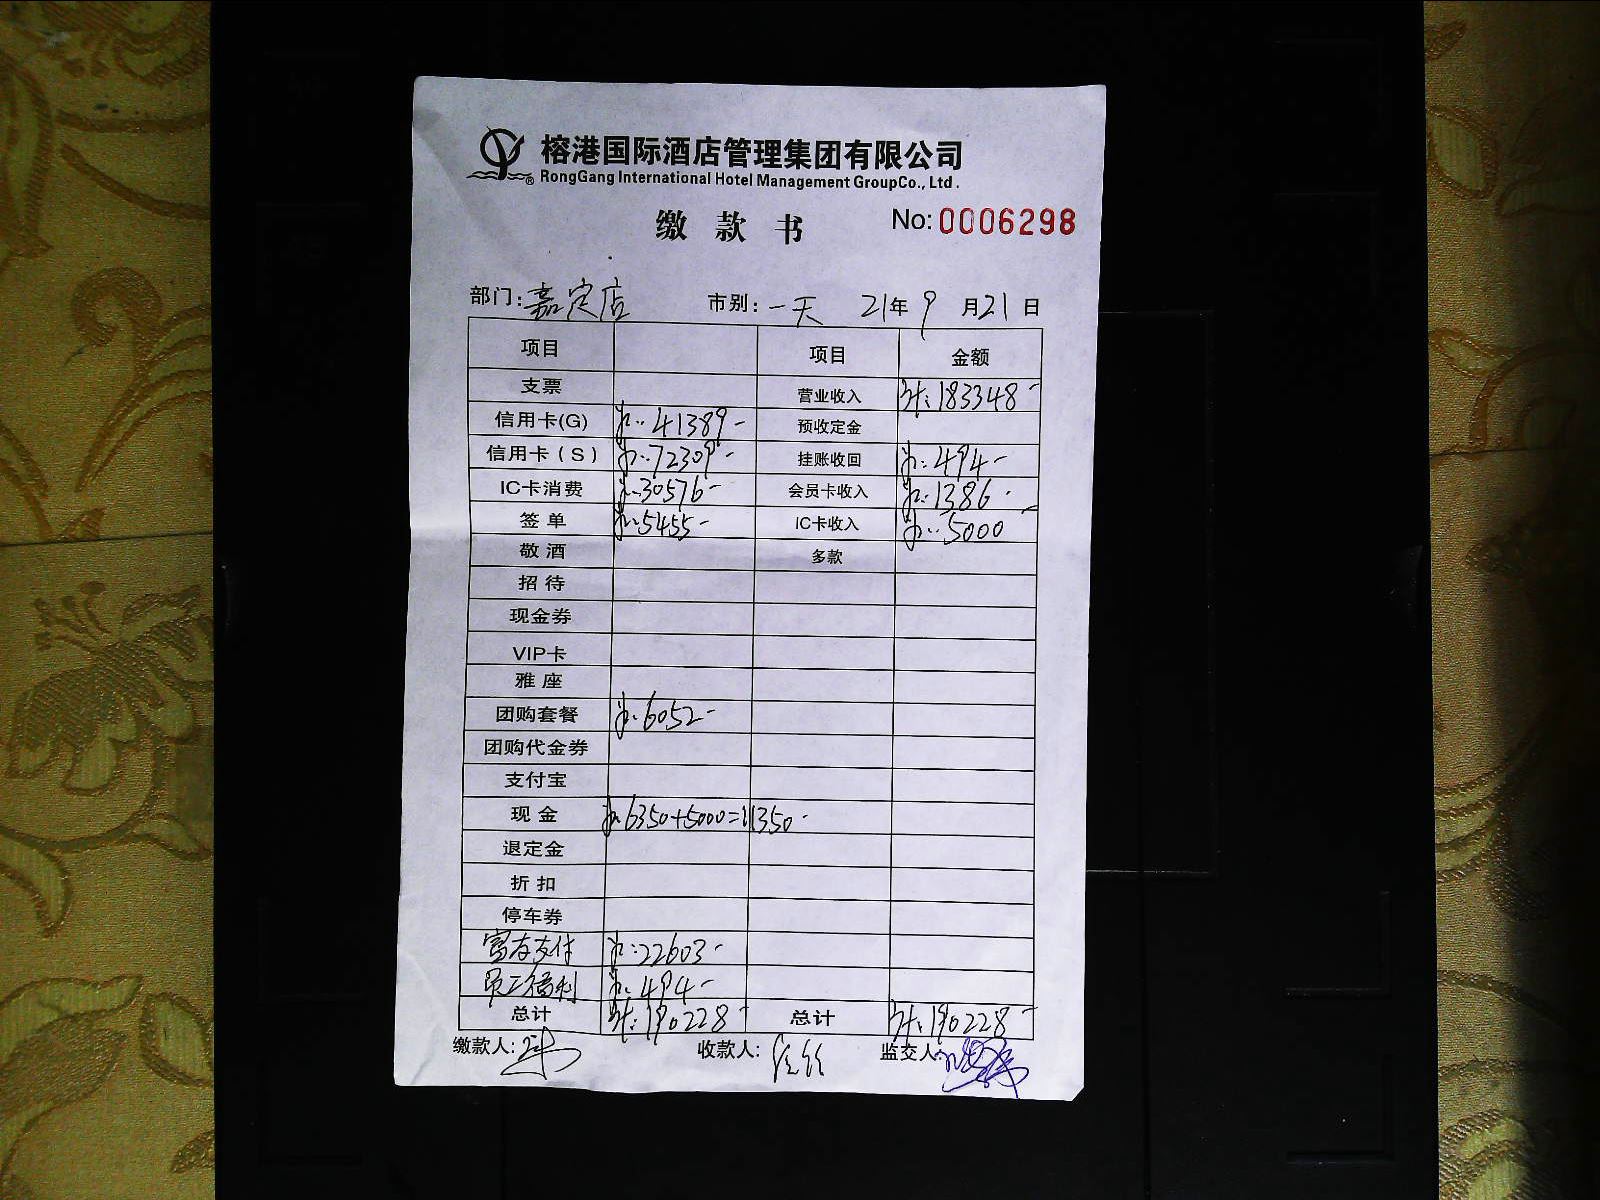 榕港国际酒店管理集团有限公司
RongGang International Hotel Management GroupCo., Ltd.
缴款书 No: 0006298
部门: 嘉定店 市别: 一天 21年 9月21日
项目 项目 金额
支票 营业收入 计: 183348-
信用卡(G) 41389- 预收定金
信用卡(S) 72309- 挂账收回 494-
IC卡消费 30576- 会员卡收入 1386-
签单 5455- IC卡收入 5000-
敬酒 多款
招待
现金券
VIP卡
雅座
团购套餐 6052-
团购代金券
支付宝
现金 6350+5000=11350-
退定金
折扣
停车券
富友支付 22603-
员工福利 494-
总计 计: 190228- 总计 计: 190228-
缴款人: 收款人: 监交人: